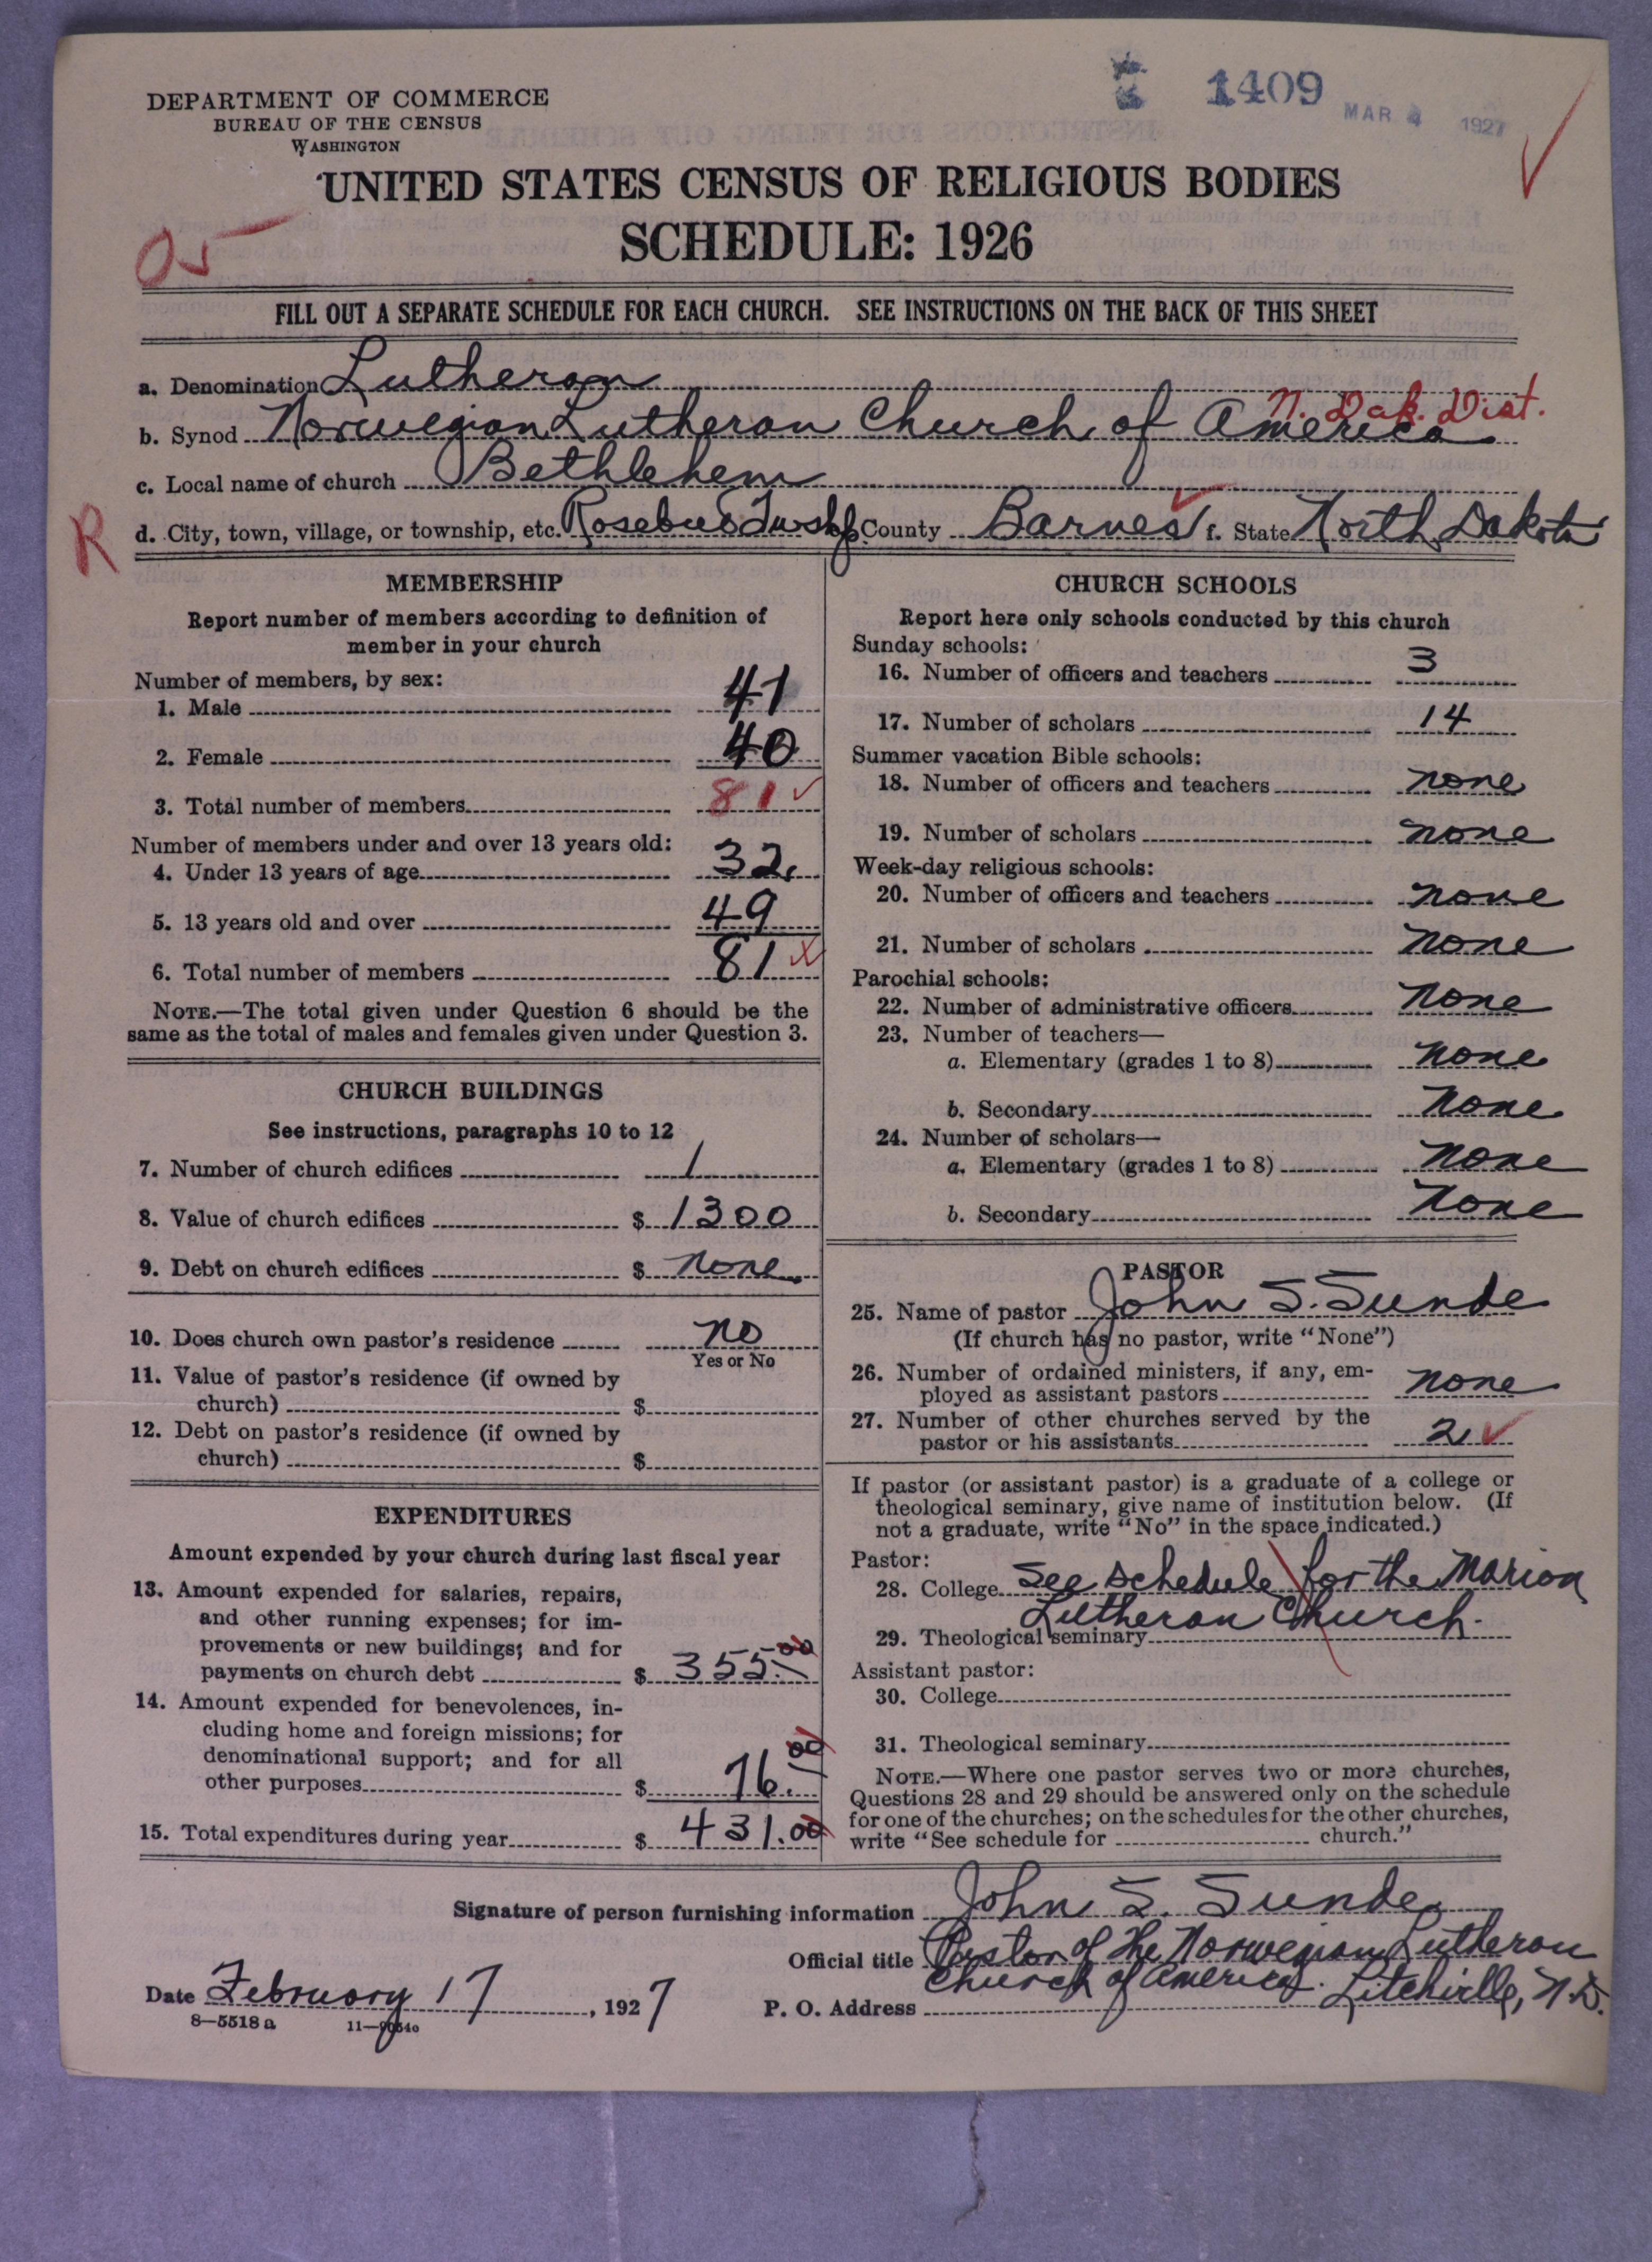 1409
MAR 4 1927
DEPARTMENT OF COMMERCE
BUREAU OF THE CENSUS
WASHINGTON
UNITED STATES CENSUS OF RELIGIOUS BODIES
SCHEDULE: 1926
05
FILL OUT A SEPARATE SCHEDULE FOR EACH CHURCH. SEE INSTRUCTIONS ON THE BACK OF THIS SHEET
a. Denomination Lutheran
N. Dak. Dist.
b. Synod Norwegian Lutheran Church of America
c. Local name of church Bethlehem
R
d. City, town, village, or township, etc. Rosebud Twshp County Barnes f. State North Dakota
MEMBERSHIP
Report number of members according to definition of
member in your church
Number of members, by sex:
1. Male 41
2. Female 40
3. Total number of members 81
Number of members under and over 13 years old:
4. Under 13 years of age 32
5. 13 years old and over 49
6. Total number of members 81
NOTE.—The total given under Question 6 should be the
same as the total of males and females given under Question 3.
CHURCH BUILDINGS
See instructions, paragraphs 10 to 12
7. Number of church edifices 1
8. Value of church edifices $ 1300
9. Debt on church edifices $ none
10. Does church own pastor's residence no
Yes or No
11. Value of pastor's residence (if owned by
church) $
12. Debt on pastor's residence (if owned by
church) $
EXPENDITURES
Amount expended by your church during last fiscal year
13. Amount expended for salaries, repairs,
and other running expenses; for im-
provements or new buildings; and for
payments on church debt $ 355.00
14. Amount expended for benevolences, in-
cluding home and foreign missions; for
denominational support; and for all
other purposes $ 76.00
15. Total expenditures during year $ 431.00
CHURCH SCHOOLS
Report here only schools conducted by this church
Sunday schools:
16. Number of officers and teachers 3
17. Number of scholars 14
Summer vacation Bible schools:
18. Number of officers and teachers none
19. Number of scholars none
Week-day religious schools:
20. Number of officers and teachers none
21. Number of scholars none
Parochial schools:
22. Number of administrative officers none
23. Number of teachers—
a. Elementary (grades 1 to 8) none
b. Secondary none
24. Number of scholars—
a. Elementary (grades 1 to 8) none
b. Secondary none
PASTOR
25. Name of pastor John S. Sunde
(If church has no pastor, write "None")
26. Number of ordained ministers, if any, em-
ployed as assistant pastors none
27. Number of other churches served by the
pastor or his assistants 2
If pastor (or assistant pastor) is a graduate of a college or
theological seminary, give name of institution below. (If
not a graduate, write "No" in the space indicated.)
Pastor:
28. College See schedule for the Marion
Lutheran Church.
29. Theological seminary
Assistant pastor:
30. College
31. Theological seminary
NOTE.—Where one pastor serves two or more churches,
Questions 28 and 29 should be answered only on the schedule
for one of the churches; on the schedules for the other churches,
write "See schedule for church."
Signature of person furnishing information John S. Sunde
Official title Pastor of the Norwegian Lutheran
Church of America.
Date February 17, 1927
P. O. Address Litchville, N.D.
8—5518a